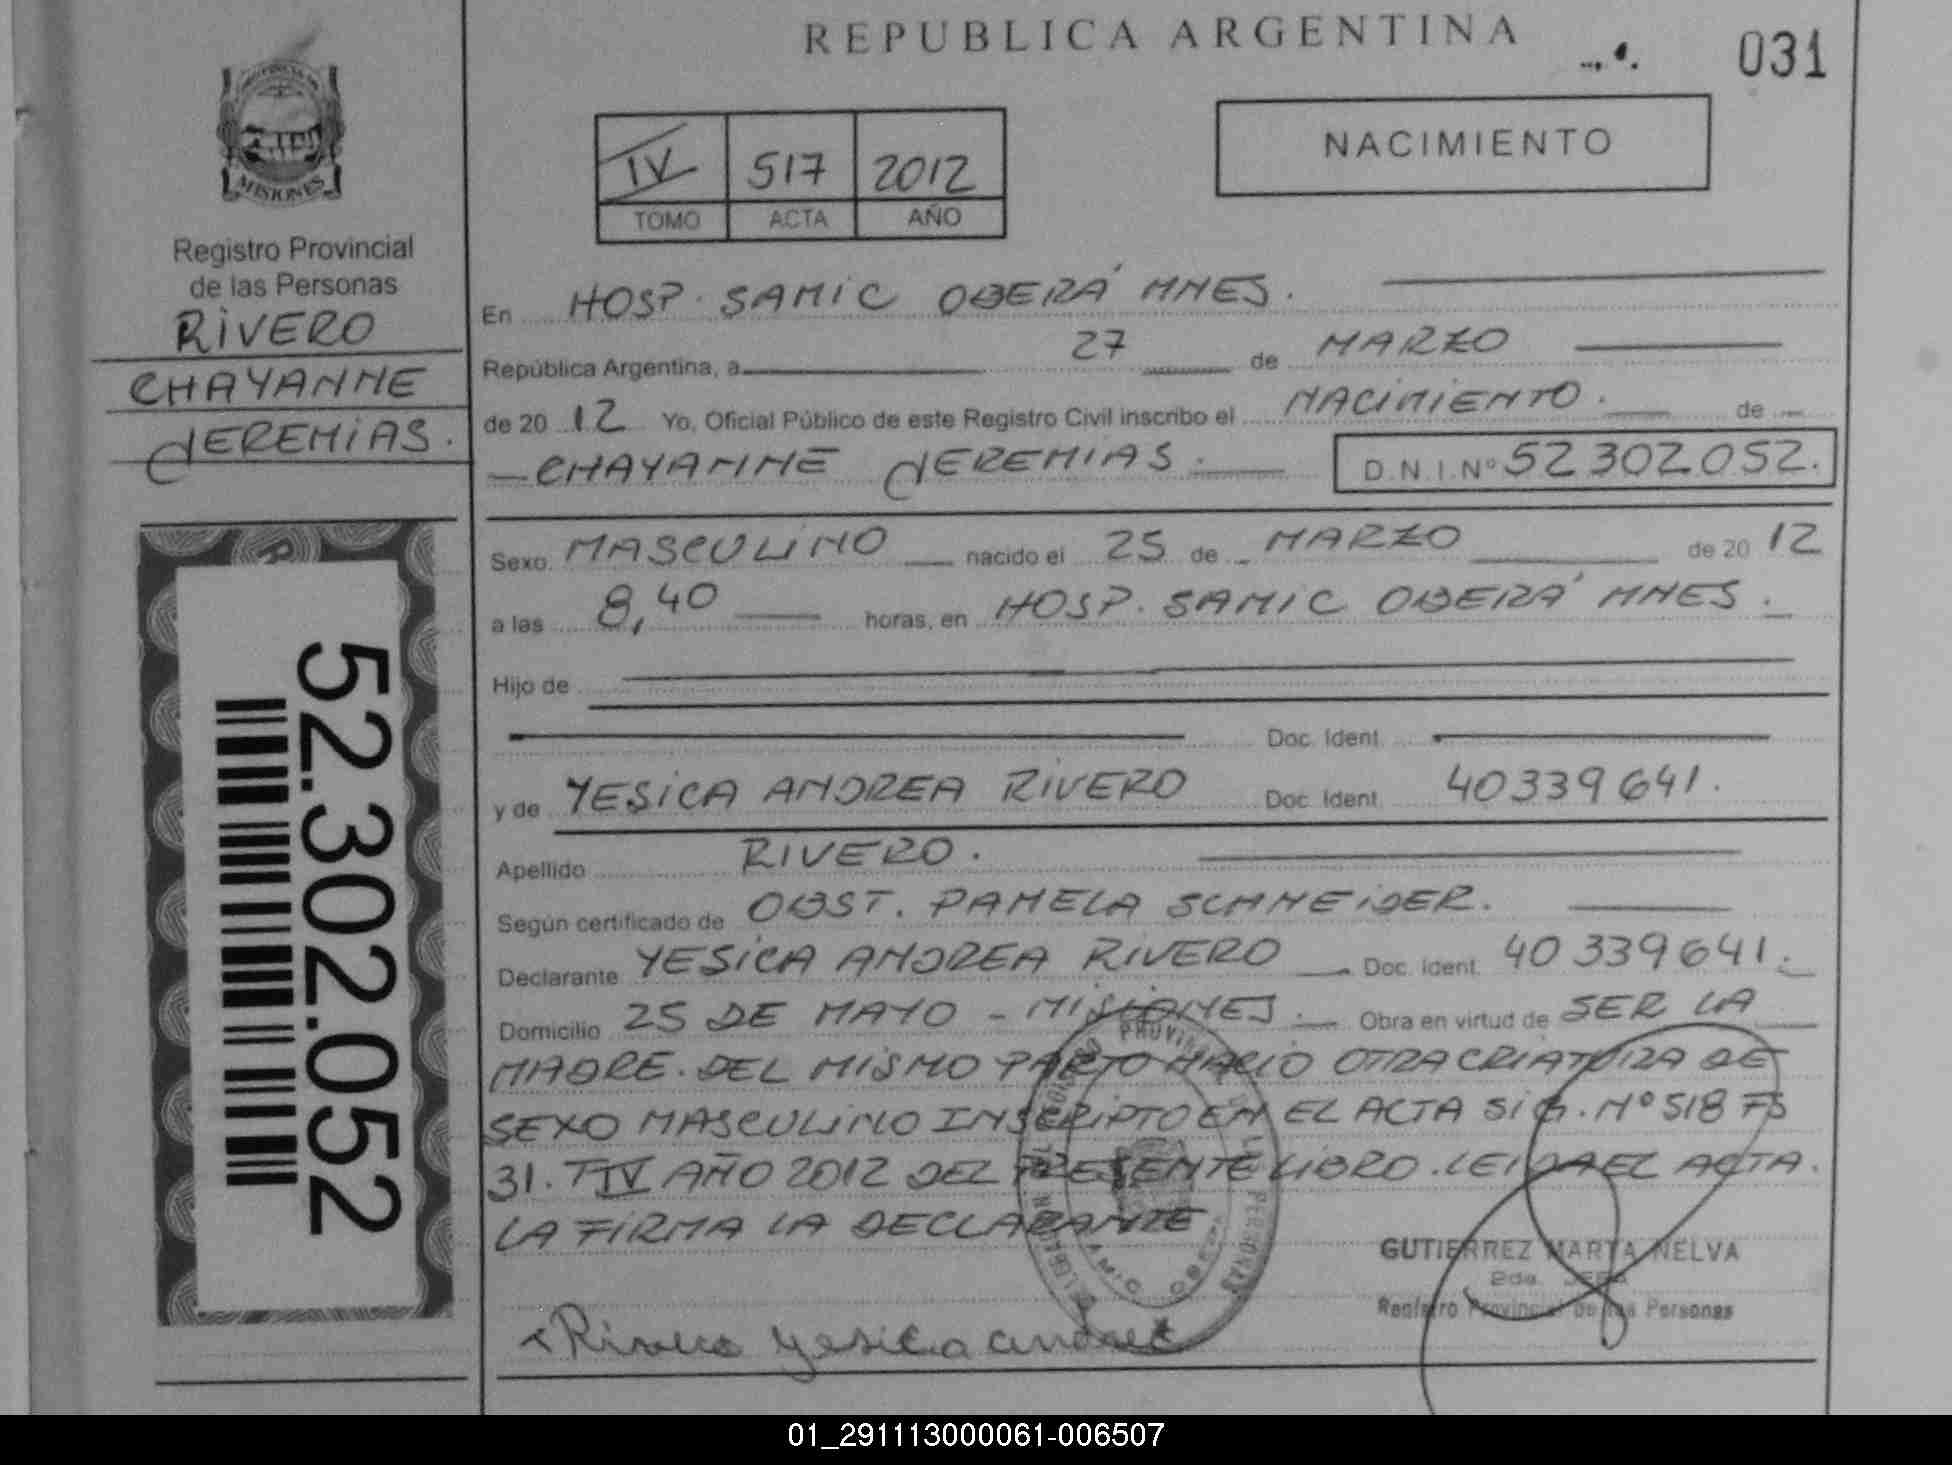 REPUBLICA ARGENTINA
031
PROVINCIA DE
MISIONES
Registro Provincial
de las Personas
RIVERO
CHAYANNE
JEREMIAS.
52.302.052
IV 517 2012
TOMO ACTA AÑO
NACIMIENTO
En HOSP. SAMIC OBERÁ MNES.
República Argentina, a 27 de MARZO
de 2012 Yo, Oficial Público de este Registro Civil inscribo el NACIMIENTO. de
CHAYANNE JEREMIAS. D.N.I.Nº 52302052.
Sexo MASCULINO nacido el 25 de MARZO de 2012
a las 8,40 horas, en HOSP. SAMIC OBERÁ MNES.
Hijo de
Doc. Ident.
y de YESICA ANDREA RIVERO Doc. Ident. 40339641.
Apellido RIVERO.
Según certificado de OBST. PAMELA SCHNEIDER.
Declarante YESICA ANDREA RIVERO Doc. Ident. 40339641.
Domicilio 25 DE MAYO - MISIONES. Obra en virtud de SER LA
MADRE. DEL MISMO PARTO NACIÓ OTRA CRIATURA DE
SEXO MASCULINO INSCRIPTO EN EL ACTA SIG. Nº 518 FS
31. T IV AÑO 2012 DEL PRESENTE LIBRO. LEIDA EL ACTA.
LA FIRMA LA DECLARANTE
GUTIERREZ MARTA NELVA
2da. JEFA
Registro Provincial de las Personas
Rivero yesica andrea
01_291113000061-006507